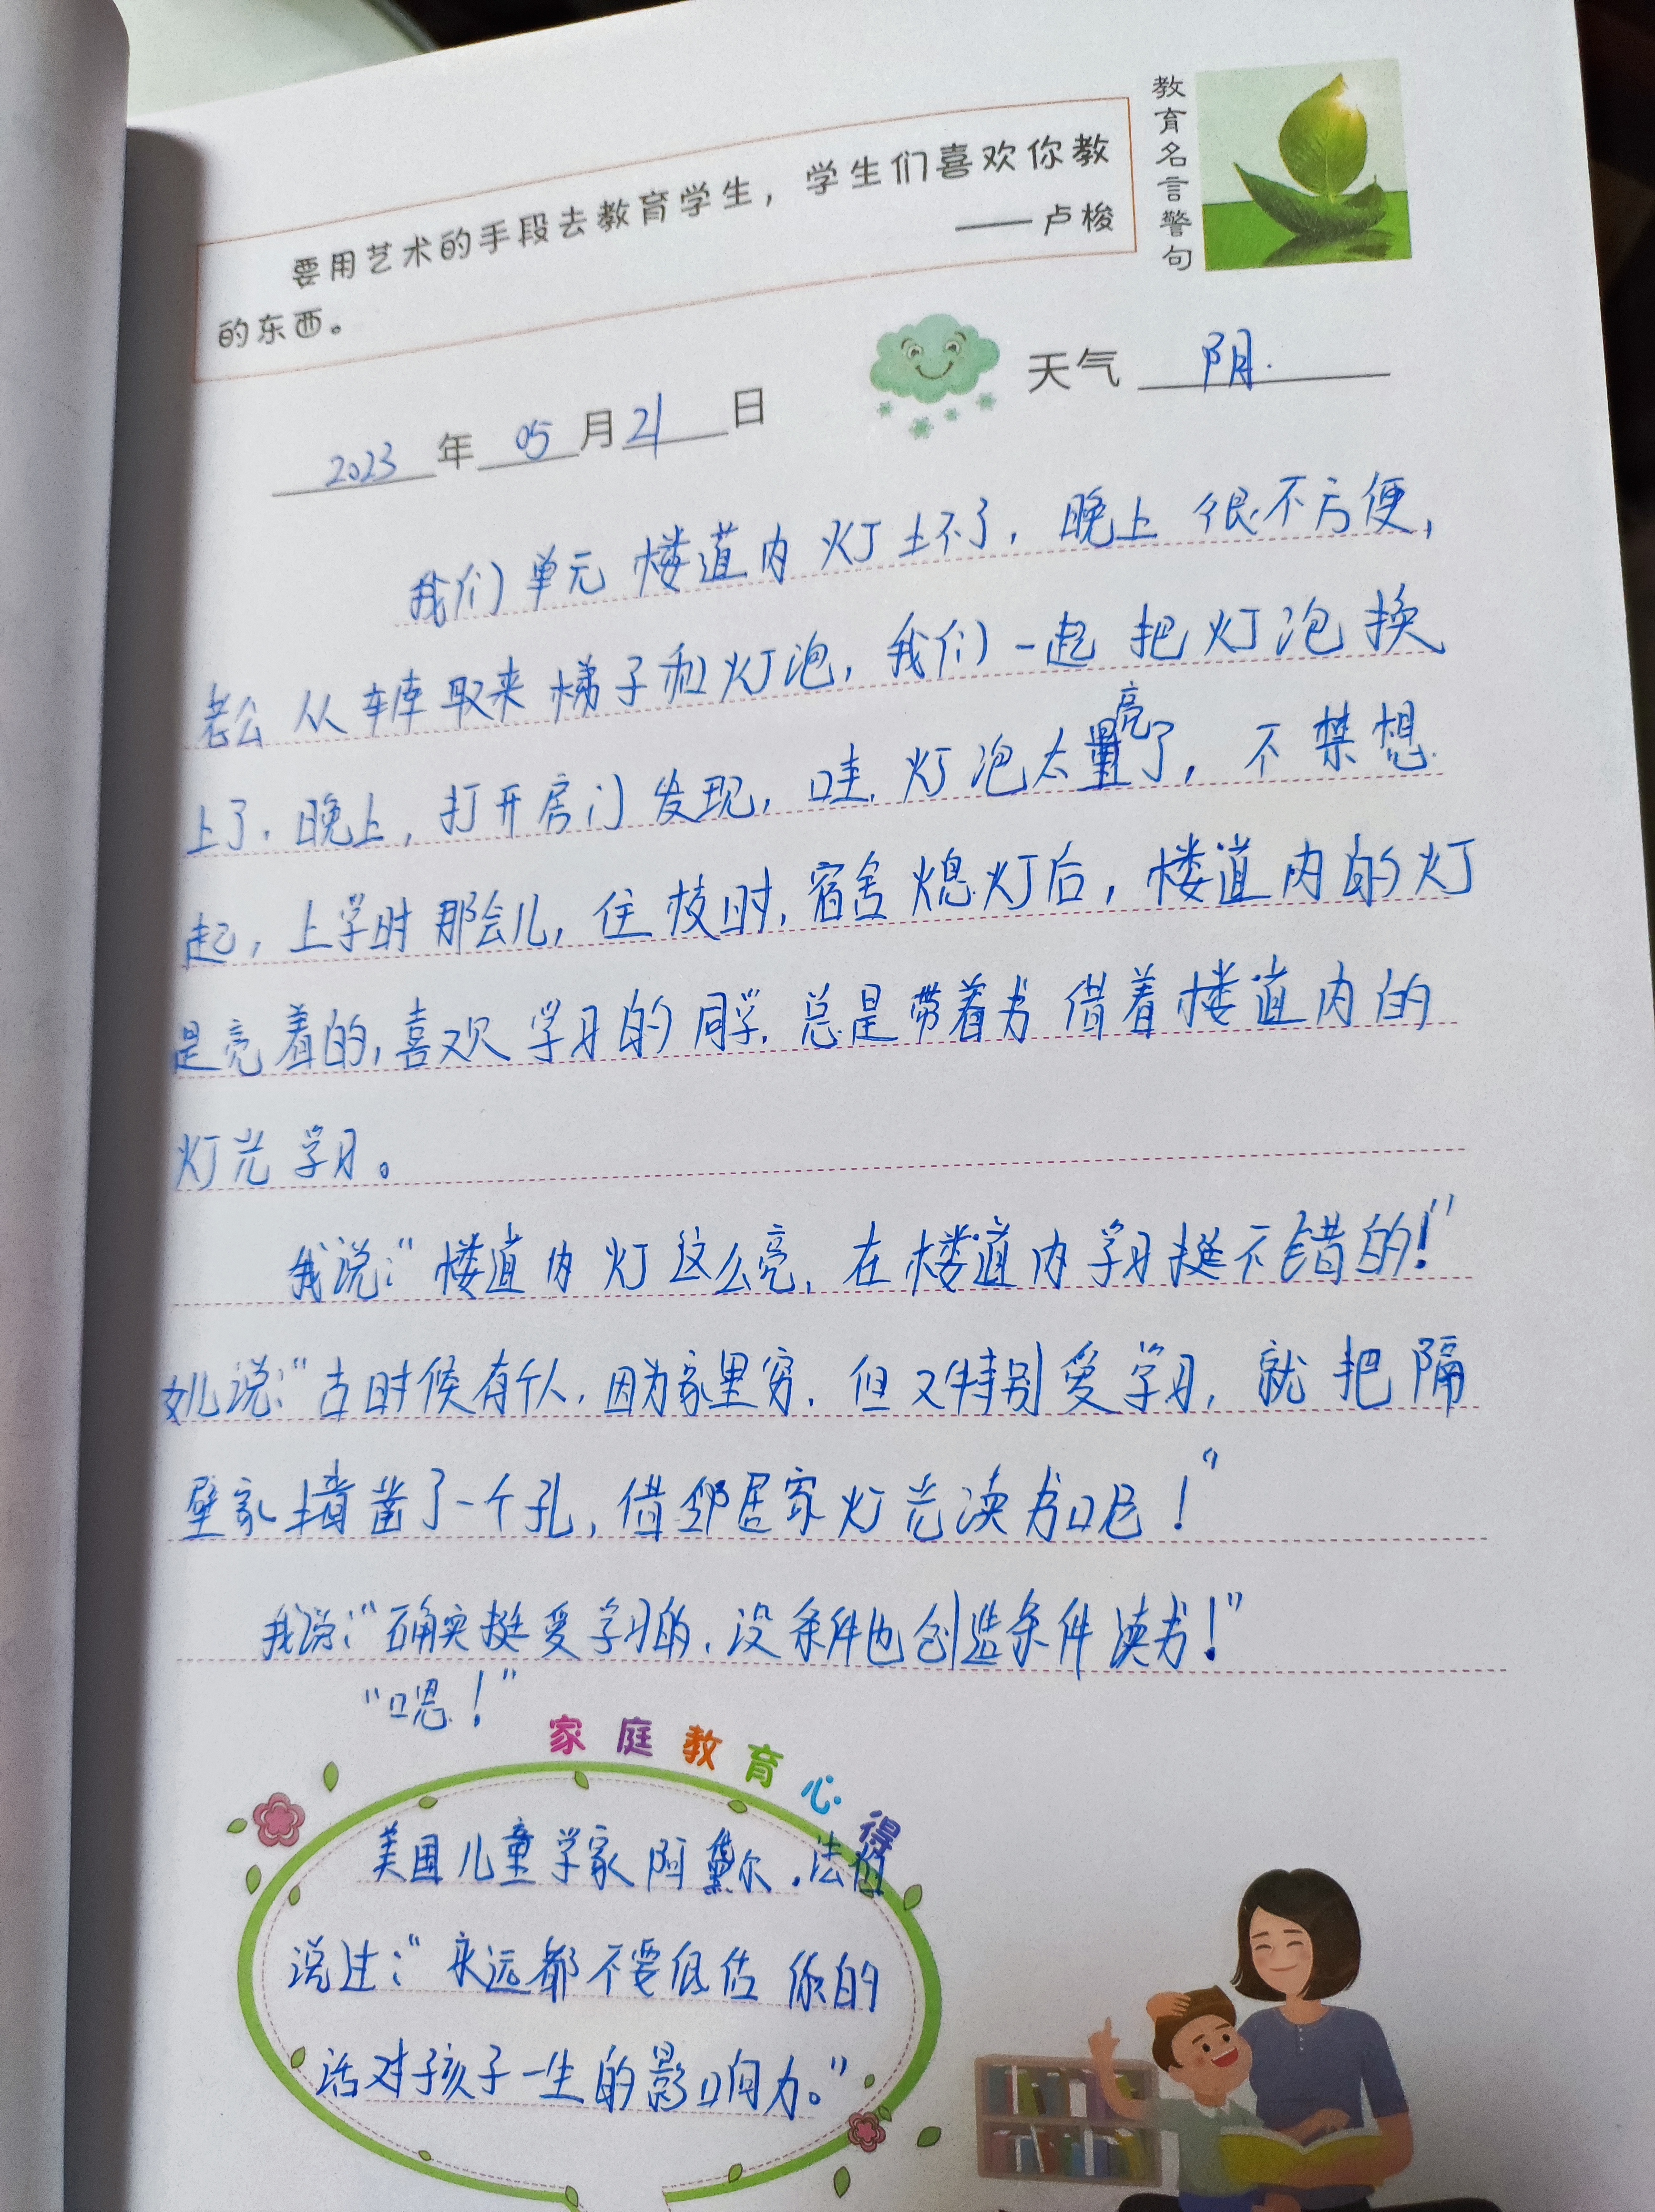 教育名言警句
要用艺术的手段去教育学生，学生们喜欢你教
的东西。
——卢梭
天气 阴.
2023年05月21日
我们单元楼道内灯坏了，晚上很不方便，
老公从车库取来梯子和灯泡，我们一起把灯泡换
上了.晚上，打开房门发现，哇，灯泡太亮了，不禁想
起，上学时那会儿，住校时，宿舍熄灯后，楼道内的灯
是亮着的，喜欢学习的同学，总是带着书借着楼道内的
灯光学习。
我说：“楼道内灯这么亮，在楼道内学习挺不错的！”
女儿说：“古时候有个人，因为家里穷，但又特别爱学习，就把隔
壁家墙凿了一个孔，借邻居家灯光读书呢！”
我说：“确实挺爱学习的，没条件也创造条件读书！”
“嗯！”
家庭教育心得
美国儿童学家阿黛尔.法伯
说过：“永远都不要低估你的
话对孩子一生的影响力。”